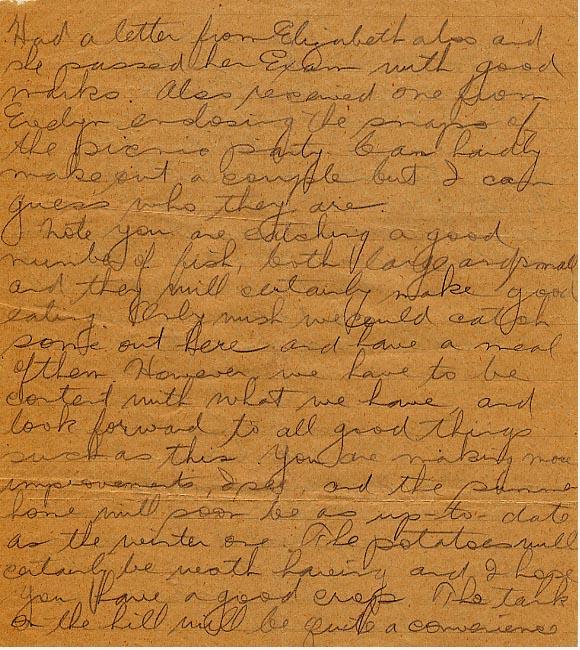 Had a letter from Elizabeth also and
she passed her Exam with good
marks. Also received one from
Evelyn enclosing the snaps of
the picnic party. Can hardly
make out a couple but I can
guess who they are.
Note you are catching a good
number of fish, both large and small
and they will certainly make good
eating. Only wish we could catch
some out here and have a meal
of them. However we have to be
content with what we have, and
look forward to all good things
such as this. You are making more
improvements, I see, and the summer
home will soon be as up-to-date
as the winter one. The potatoes will
certainly be worth having and I hope
you have a good crop. The tank
on the hill will be quite a convenience